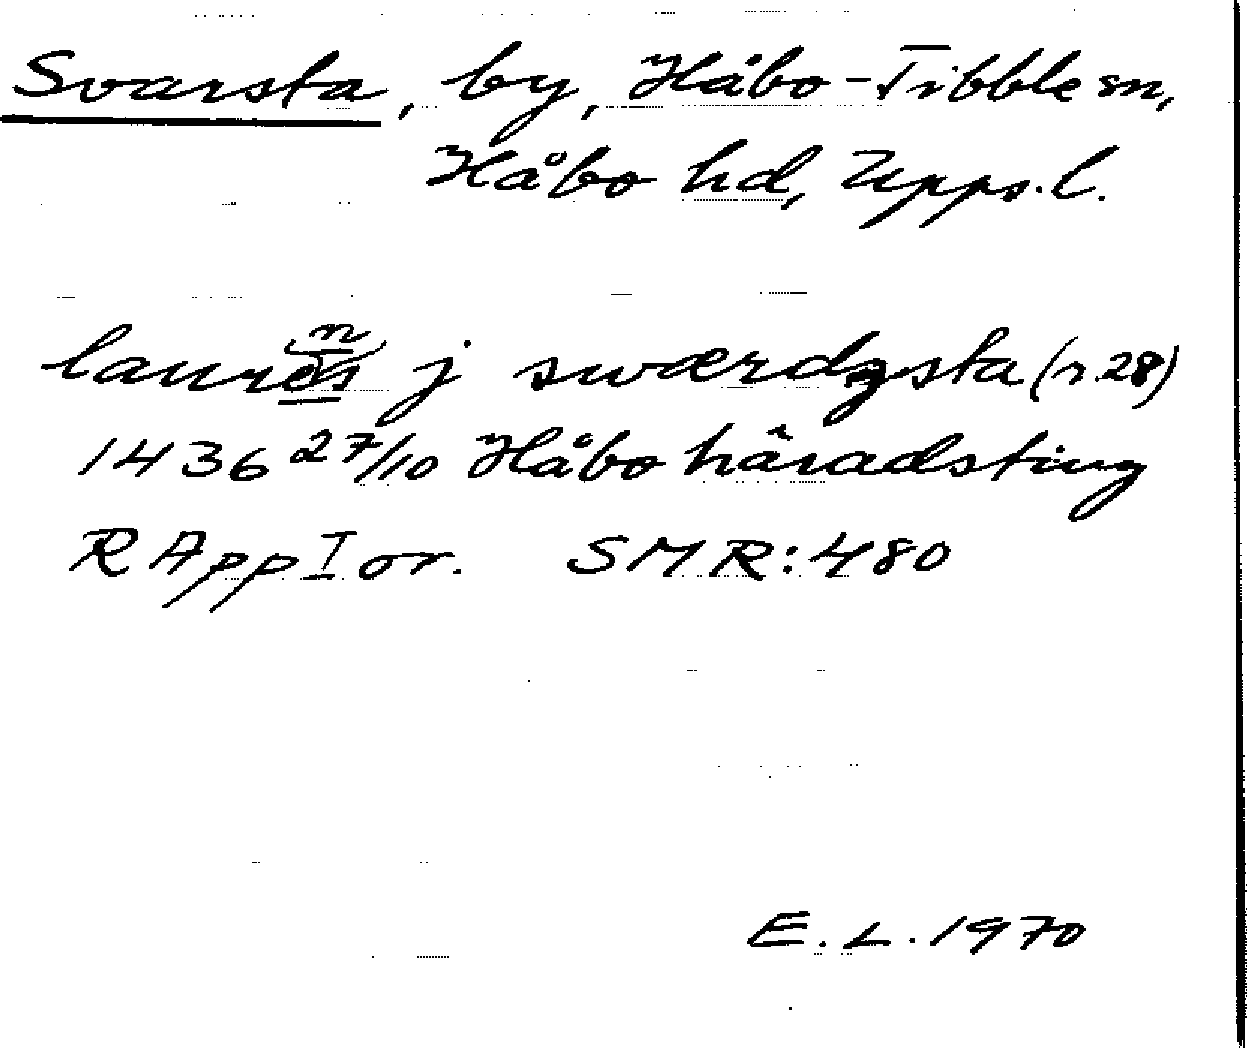 Svarsta, by, Håbo-Tibble sn,
Håbo hd, Upps. l.
laurens j swærdzsta (r. 28)
1436 27/10 Håbo häradsting
RAppI or. SMR: 480
E. L. 1970